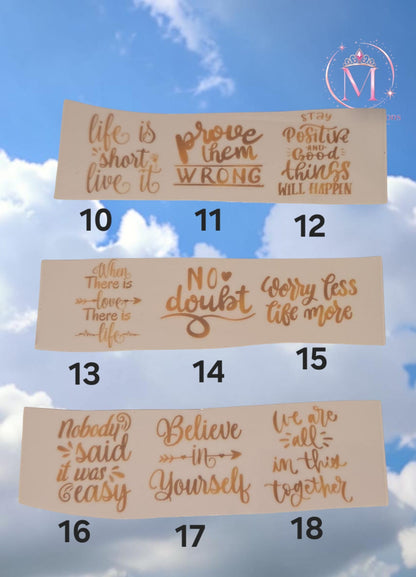 M
life is
short
live it
prove
them
WRONG
stay
Positive
AND
Good
things
WILL HAPPEN
10
11
12
When
There is
love
There is
life
NO
doubt
Worry less
life more
13
14
15
Nobody
said
it was
easy
Believe
in
Yourself
We are
all
in this
together
16
17
18